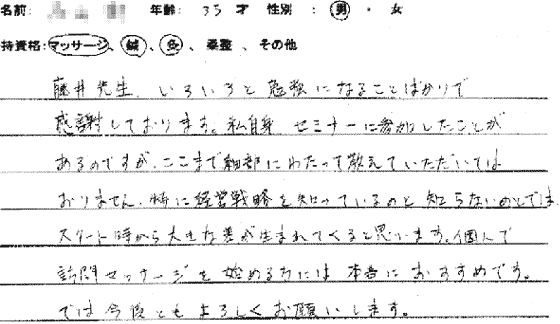 名前: 年齢: 35 才 性別 : 男 ・ 女
持資格:マッサージ、鍼、灸、柔整、その他
藤井先生、いろいろと勉強になることばかりで
感謝しております。私自身、セミナーに参加したことが
あるのですが、ここまで細部にわたって教えていただいては
おりません。特に経営戦略を知っているのと知らないのとでは、
スタート時から大きな差が生まれてくると思います。個人で
訪問マッサージを始める方には本当におすすめです。
では今後ともよろしくお願いします。